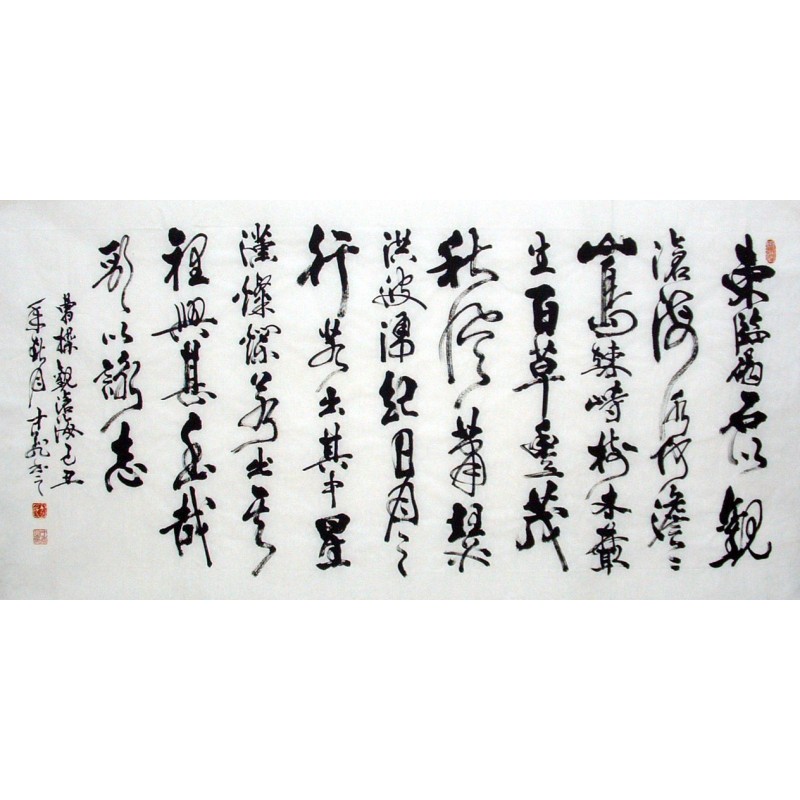 東臨碣石以觀
滄海水何澹〻
山島竦峙樹木叢
生百草豐茂
秋風蕭瑟
洪波湧起日月之
行若出其中星
漢燦爛若出其
裡興甚至哉
歌以詠志
曹操觀滄海己丑
年秋月